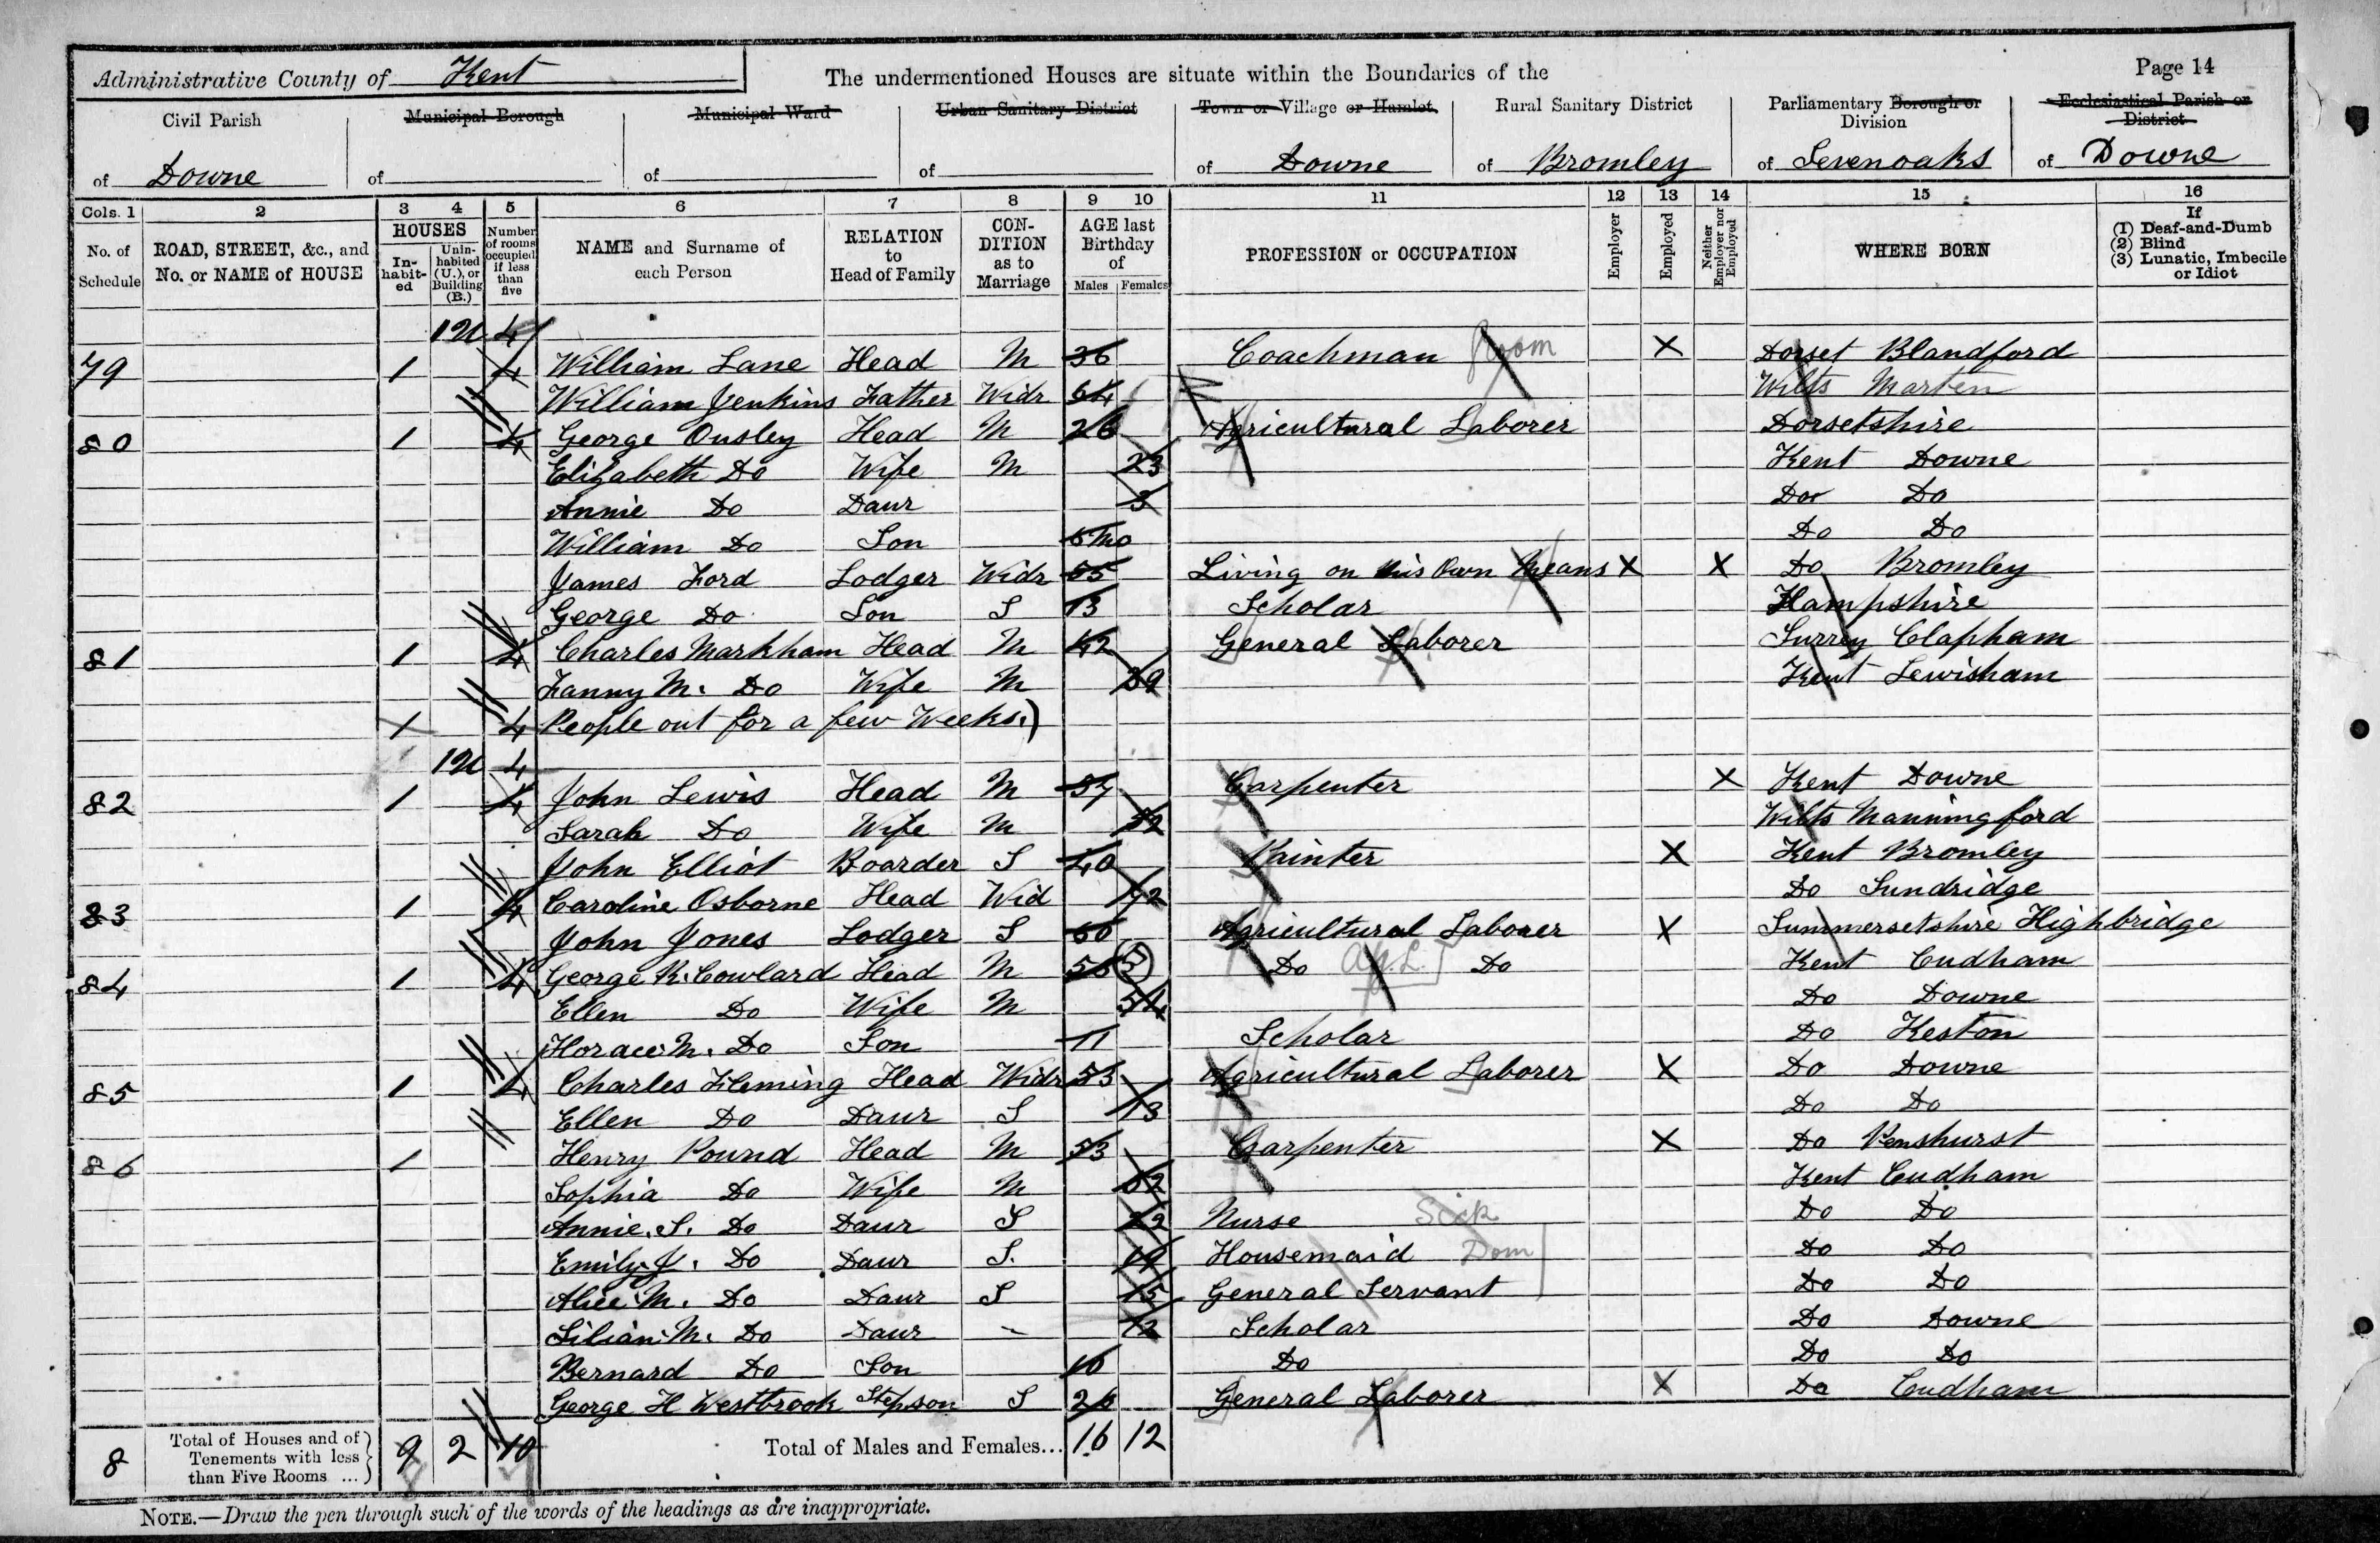 Administrative County of Kent
The undermentioned Houses are situate within the Boundaries of the
Page 14
Civil Parish of Downe
Municipal Borough of
Municipal Ward of
Urban Sanitary District of
Town or Village or Hamlet of Downe
Rural Sanitary District of Bromley
Parliamentary Borough or Division of Sevenoaks
Ecclesiastical Parish or District of Downe
Cols. 1 2 3 4 5 6 7 8 9 10 11 12 13 14 15 16
No. of Schedule
ROAD, STREET, &c., and No. or NAME of HOUSE
HOUSES
In-habit-ed
Unin-habited (U.), or Building (B.)
Number of rooms occupied if less than five
NAME and Surname of each Person
RELATION to Head of Family
CON-DITION as to Marriage
AGE last Birthday of
Males Females
PROFESSION or OCCUPATION
Employer
Employed
Neither Employer nor Employed
WHERE BORN
If
(1) Deaf-and-Dumb
(2) Blind
(3) Lunatic, Imbecile or Idiot
1U 4
79 1 4 William Lane Head M 36 Coachman X Dorset Blandford
William Jenkins Father Widr 64 Wilts Marten
80 1 4 George Ousley Head M 26 Agricultural Laborer Dorsetshire
Elizabeth Do Wife M 23 Kent Downe
Annie Do Daur 3 Do Do
William Do Son 5 Mo Do Do
James Ford Lodger Widr Living on his Own Means X X Do Bromley
George Do Son S 13 Scholar Hampshire
81 1 4 Charles Markham Head M 42 General Laborer Surrey Clapham
Fanny M. Do Wife M 39 Kent Lewisham
1 4 People out for a few Weeks.)
1U 4
82 1 4 John Lewis Head M 57 Carpenter X Kent Downe
Sarah Do Wife M 52 Wilts Manningford
John Elliot Boarder S 40 Painter X Kent Bromley
83 1 4 Caroline Osborne Head Wid 72 Do Sundridge
John Jones Lodger S 60 Agricultural Laborer X Summersetshire Highbridge
84 1 4 George R. Cowlard Head M 56 5 Do Ag. L. Do Kent Cudham
Ellen Do Wife M 54 Do Downe
Horace M. Do Son 11 Scholar Do Keston
85 1 4 Charles Fleming Head Widr 53 Agricultural Laborer X Do Downe
Ellen Do Daur S 13 Do Do
86 1 Henry Pound Head M 53 Carpenter X Do Penshurst
Sophia Do Wife M 52 Kent Cudham
Annie. S. Do Daur S 22 Nurse Sick Do Do
Emily J. Do Daur S. 19 Housemaid Dom Do Do
Alice M. Do Daur S 15 General Servant Do Do
Lilian M. Do Daur - 12 Scholar Do Downe
Bernard Do Son 10 Do Do Do
George H Westbrook Stepson S 26 General Laborer X Do Cudham
8 Total of Houses and of Tenements with less than Five Rooms ... 9 2 10 Total of Males and Females... 16 12
NOTE.—Draw the pen through such of the words of the headings as are inappropriate.